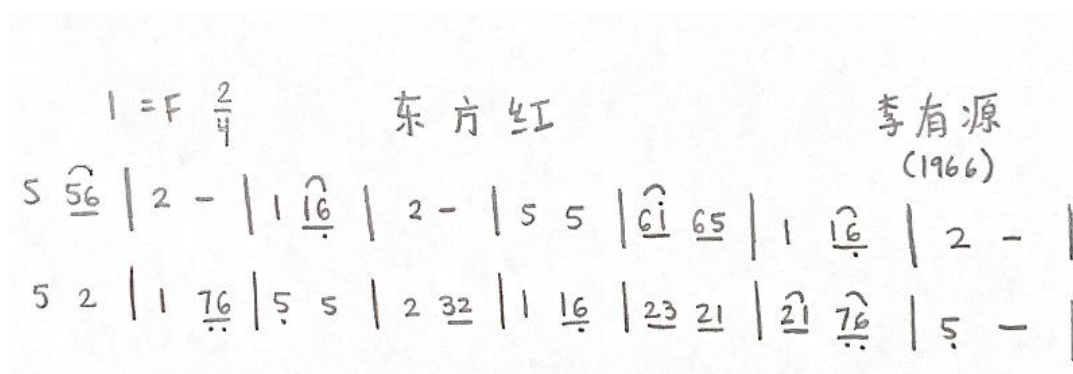 1=F 2/4 东方红 李有源
(1966)
5 56 | 2 - | 1 16̣ | 2 - | 5 5 | 6i 65 | 1 16̣ | 2 - |
5 2 | 1 7̣6̣ | 5̣ 5 | 2 32 | 1 16̣ | 23 21 | 21 7̣6̣ | 5̣ - |